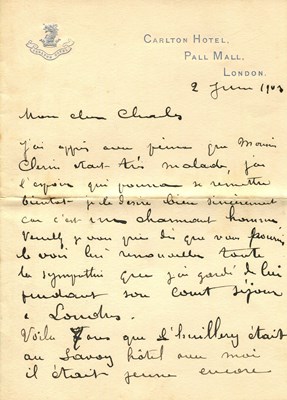 CARLTON HOTEL
CARLTON HOTEL,
PALL MALL,
LONDON.
2 Juin 1903
Mon cher Charles
J'ai appris avec peine que Monsieur
était très malade, j'ai
l'espoir qui pourra se remettre
bientot je le desire bien sincèrement
car c'est un charmant homme
Veuillez je vous prie dès que vous
le voir lui renouveller toute
la sympathie que j'ai gardé de lui
pendant son court séjour
a Londres.
Voila 7 ans que L'huillery était
au Savoy hôtel avec moi
il était jeune encore